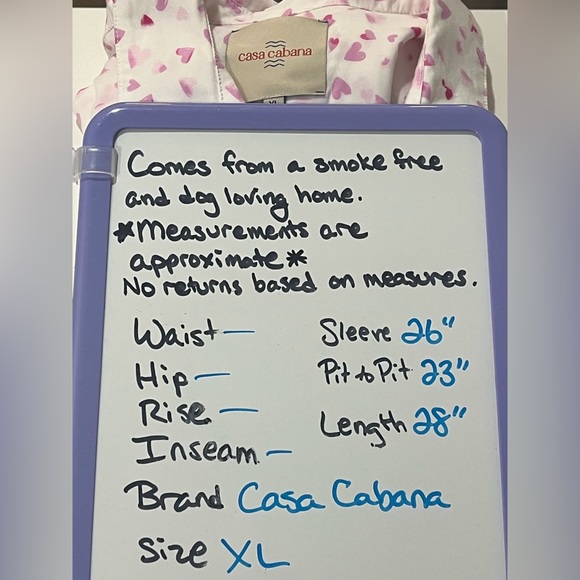 casa cabana
XL
Comes from a smoke free
and dog loving home.
*Measurements are
approximate*
No returns based on measures.
Waist — Sleeve 26"
Hip — Pit to Pit 23"
Rise —
Length 28"
Inseam —
Brand Casa Cabana
Size XL